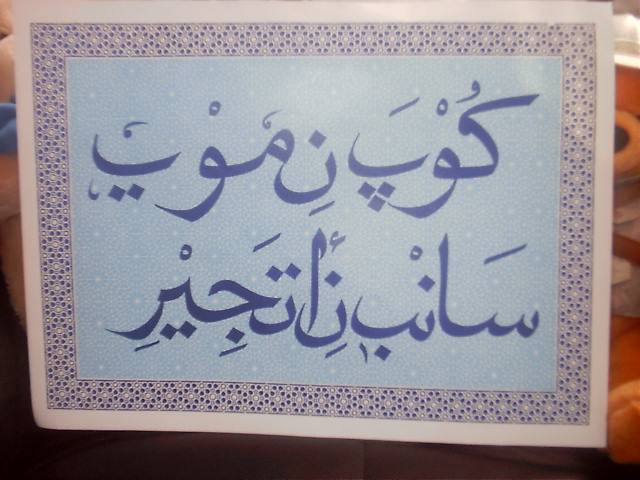 كُوْپَ نِ مْوْيْبَ
سَانْبِ نِأَتَجِيْرِ